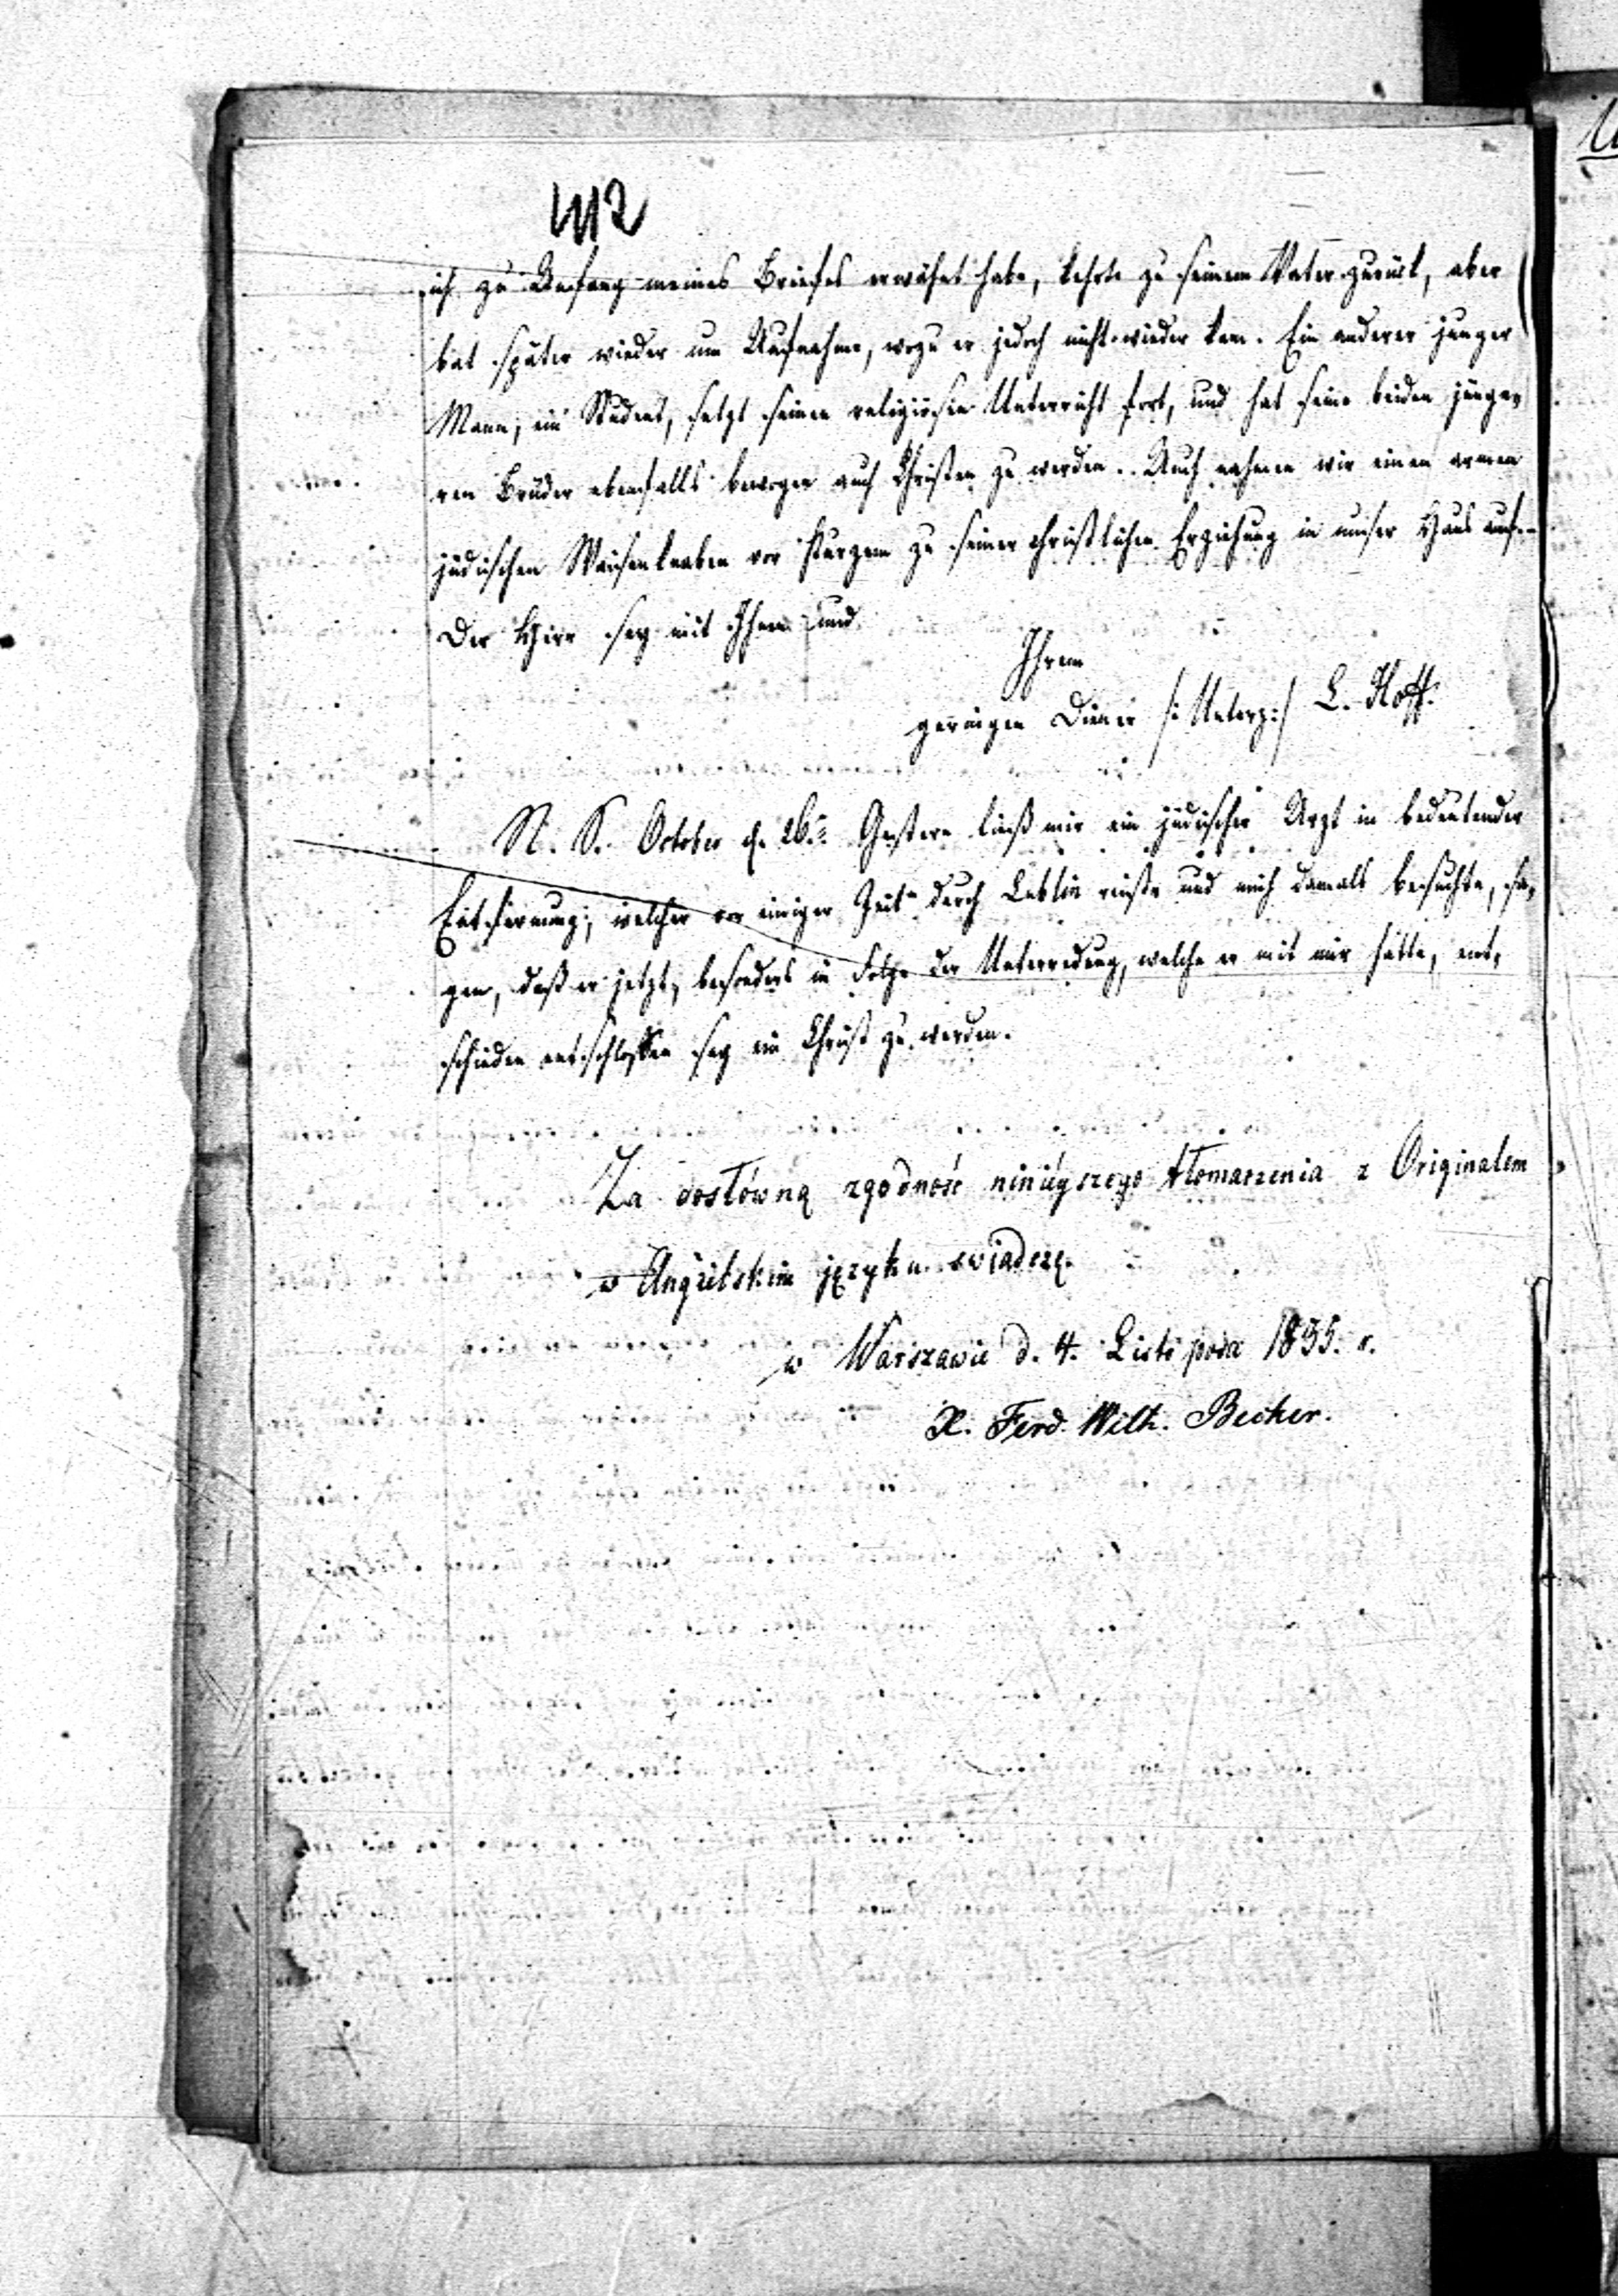 412
ich zu Anfang meines Briefes erwähnt habe, kehrte zu seinem Vater zurück, aber
bat später wieder um Aufnahme, wozu er jedoch nicht wieder kam. Ein anderer junger
Mann, ein Student, setzt seinen religiösen Unterricht fort, und hat seine beiden jünge,
ren Brüder ebenfalls bewogen auch Christen zu werden. Auch nahmen wir einen armen
jüdischen Waisenknaben vor Kurzem zu seiner christlichen Erziehung in unser Haus auf. -
Der Herr sey mit Ihnen und
Ihrem
geringen Diener /: Unterz: / L. Hoff.
N. S. October d. 26. Gestern ließ mir ein jüdischer Arzt in bedeutender
Entfernung, welcher vor einiger Zeit durch Lublin reiste und mich damals besuchte, sa,
gen, daß er jetzt, besonders in Folge der Unterredung, welche er mit mir hatte, ent,
schieden entschlossen sey ein Christ zu werden.
Za dosłówną zgodność niniéyszego tłomaczenia z Originalem
w Angielskim języku swiadczę.
w Warszawie d. 4. Listopada 1835. r.
X. Ferd. Wilh. Becker.